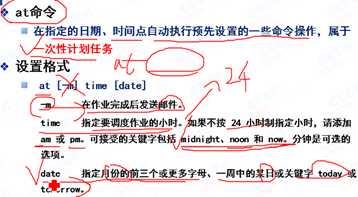 at命令
在指定的日期、时间点自动执行预先设置的一些命令操作，属于
一次性计划任务
at
24
设置格式
at [-m] time [date]
-m 在作业完成后发送邮件。
time 指定要调度作业的小时。如果不按 24 小时制指定小时，请添加
am 或 pm。可接受的关键字包括 midnight、noon 和 now。分钟是可选的
选项。
date 指定月份的前三个或更多字母、一周中的某日或关键字 today 或
tomorrow。